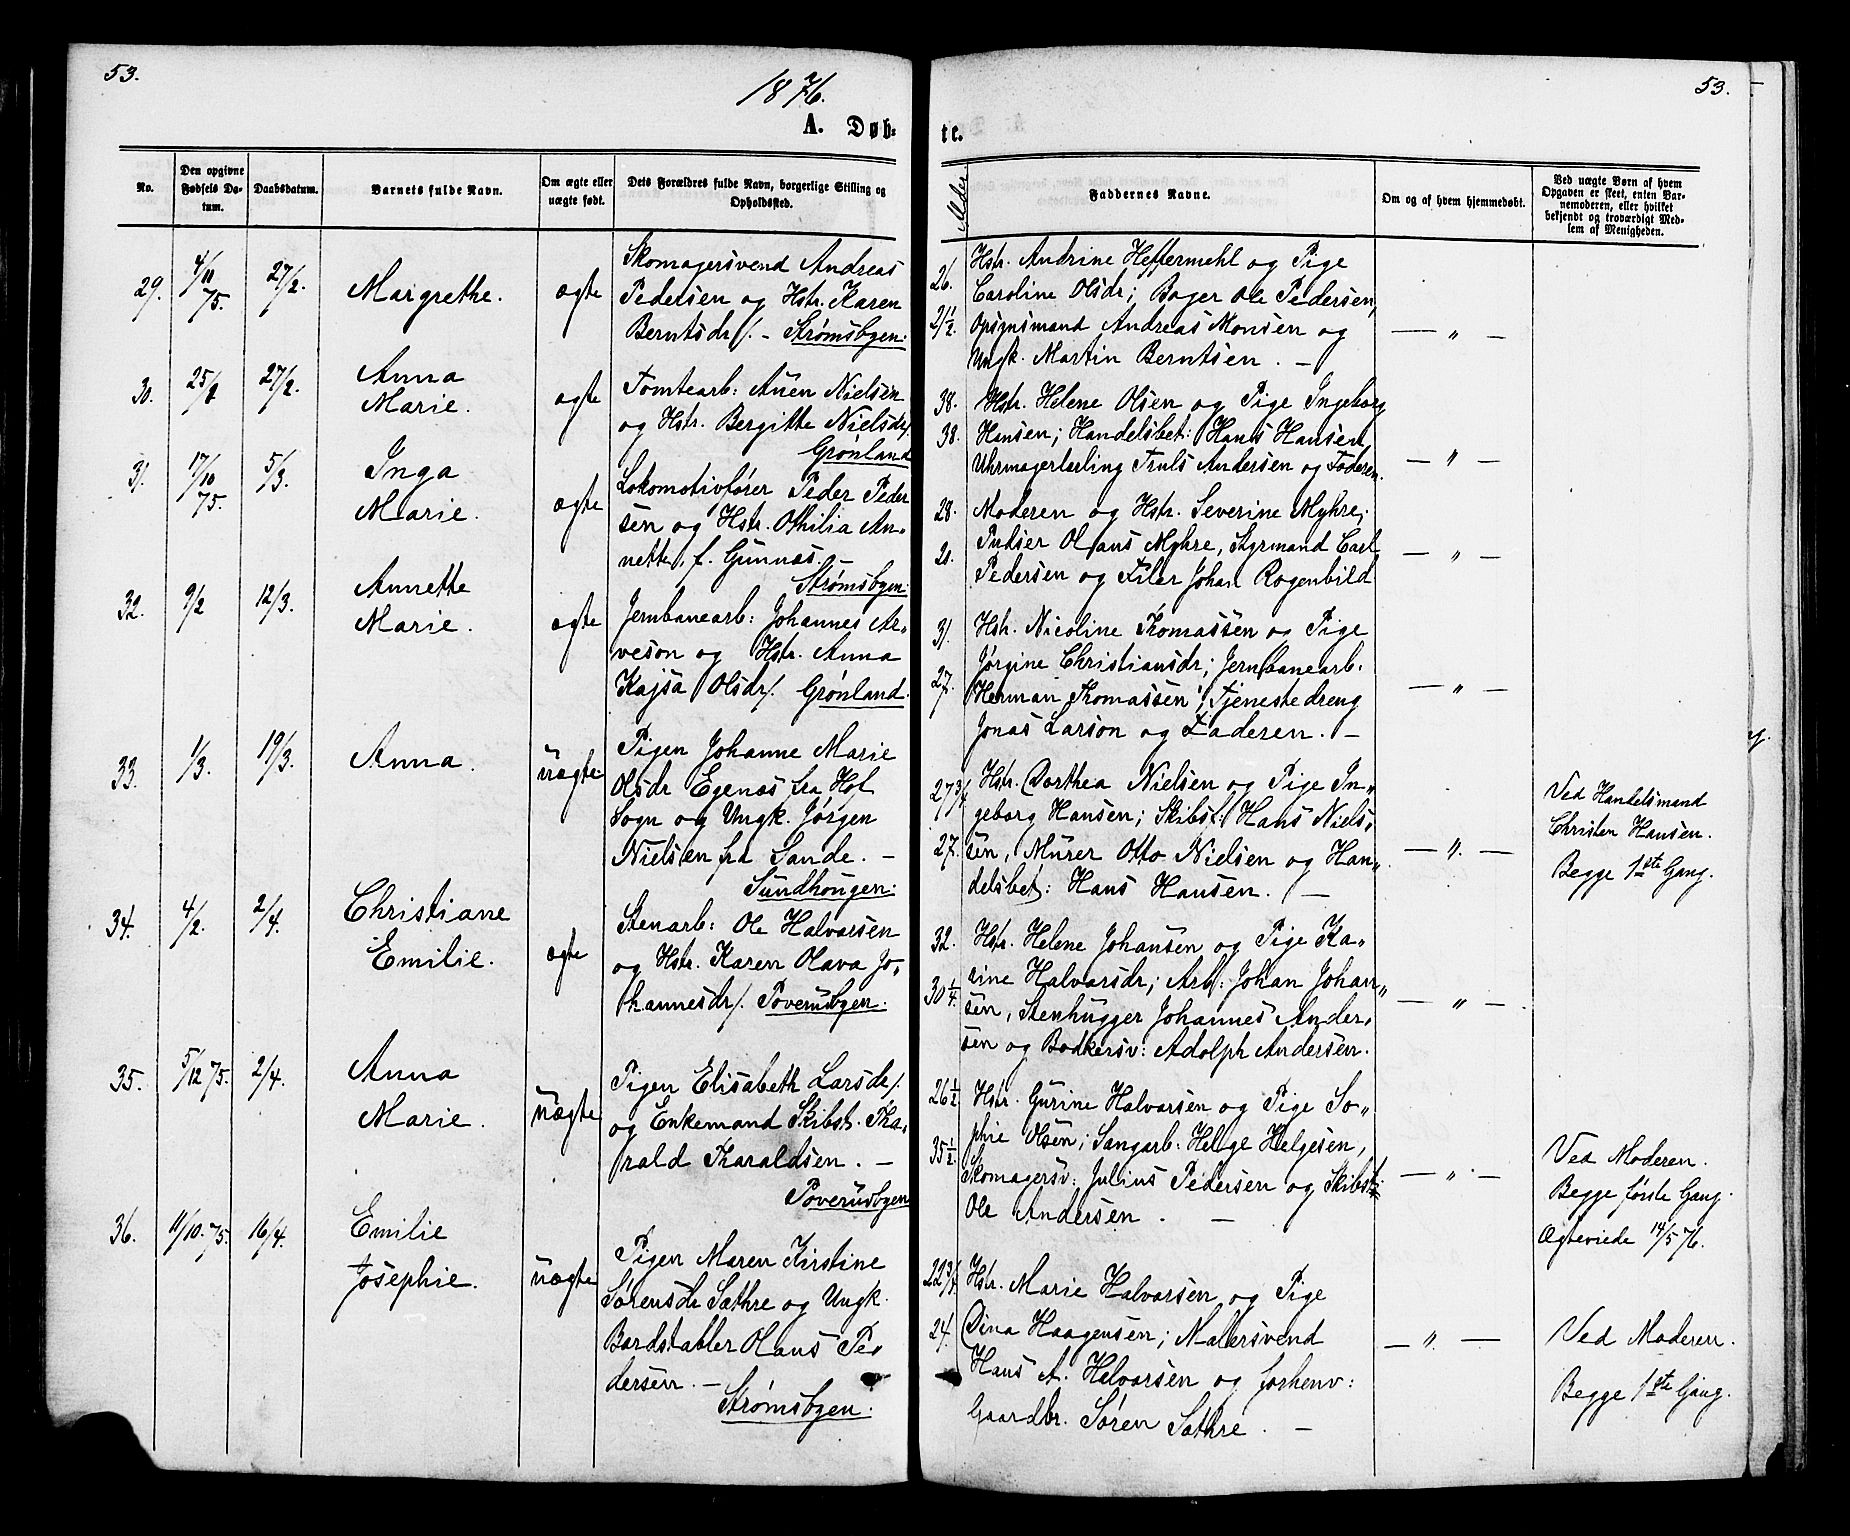 53.
1876.
A. Døb-
No.
Den opgivne Fødsels Da-tum.
Daabsdatum.
Barnets fulde Navn.
Om ægte eller uægte født.
Dets Forældres fulde Navn, borgerlige Stilling og Opholdssted.
29.
4/11 75.
27/2.
Margrethe.
ægte
Skomagersvend Andreas
Pedersen og Hstr. Karen
Berntsdr/. - Strømsbyen.
30.
27/2.
Anna
Marie.
ægte
Tomtearb: Auen Nielsen
og Hstr. Bergitte Nielsdr/.
Grønland
31.
17/10 75.
5/3.
Inga
Marie.
ægte
Lokomotivfører Peder Peder
sen og Hstr. Othilia An-
nette, f. Gunnæs. -
Strømsbyen:
32.
9/2
12/3.
Annette
Marie.
ægte
Jernbanearb: Johannes Ar-
veson og Hstr. Anna
Kajsa Olsdr/. Grønland.
33.
1/3.
19/3.
Anna.
uægte
Pigen Johanne Marie
Olsdr Egenæs fra Hof
Sogn og Ungk. Jørgen
Nielsen fra Sande. -
Sundhougen:
34.
4/2.
2/4.
Christiane
Emilie.
ægte
Stenarb: Ole Halvorsen
og Hstr. Karen Olava Jo-
hannesdr/. Poverudbyen.
35.
5/12 75.
2/4.
Anna
Marie.
uægte
Pigen Elisabeth Larsdr/.
og Enkemand Skibst. Tha-
rald Tharaldsen. -
Poverudbyen
36.
11/10. 75.
16/4.
Emilie
Josephie.
uægte
Pigen Maren Kirstine
Sørensdr Sæthre og Ungk.
Bordstabler Olaus Pe-
dersen. -
Strømsbyen.
53.
te.
Alder
Faddernes Navne.
Om og af hvem hjemmedøbt.
Ved uægte Børn af hvem
Opgaven er skeet, enten Bar-
nemoderen, eller hvilket
bekjendt og troværdigt Med-
lem af Menigheden.
26. Hstr. Andrine Heffermehl og Pige
Caroline Olsdr; Bager Ole Pedersen,
21 1/2 Opsynsmand Andreas Monsen og — „ —
Ungk. Martin Berntsen. -
38. Hstr. Helene Olsen og Pige Ingeborg
38. Hansen; Handelsbet: Hans Hansen,
Uhrmagerlærling Truls Andersen og Faderen. — „ —
28. Moderen og Hstr. Severine Myhre;
Pudser Olaus Myhre, Styrmand Carl — „ —
Pedersen og Filer Johan Rogenbild
31. Hstr. Nicoline Thomassen og Pige
Jørgine Christiansdr; Jernbanearb.
27. Herman Thomassen, Tjenestedreng — „ —
Jonas Larson og Faderen. -
27 3/4 Hstr. Dorthea Nielsen og Pige In-
geborg Hansen; Skibst: Hans Niels-
27. sen, Murer Otto Nielsen og Han- — „ —
delsbet: Hans Hansen. -
Ved Handelsmand
Christen Hansen.
Begge 1ste Gang.
32. Hstr. Helene Johansen og Pige Ka-
30 1/4. rine Halvorsdr; Arb: Johan Johan-
sen, Stenhugger Johannes Ander- — „ —
sen og Bødkersv: Adolph Andersen.
26 1/2 Hstr. Gurine Halvorsen og Pige So-
35 1/2. phie Olsen; Sangarb: Helge Helgesen,
Skomagersv: Julius Pedersen og Skibst: — „ —
Ole Andersen. -
Ved Moderen.
Begge første Gang.
Ægteviede 14/5 76.
22 3/4 Hstr. Marie Halvorsen og Pige
24. Dina Haagensen; Malersvend — „ —
Hans A. Halvorsen og forhenv:
Gaardbr. Søren Sæthre. -
Ved Moderen.
Begge 1ste Gang.